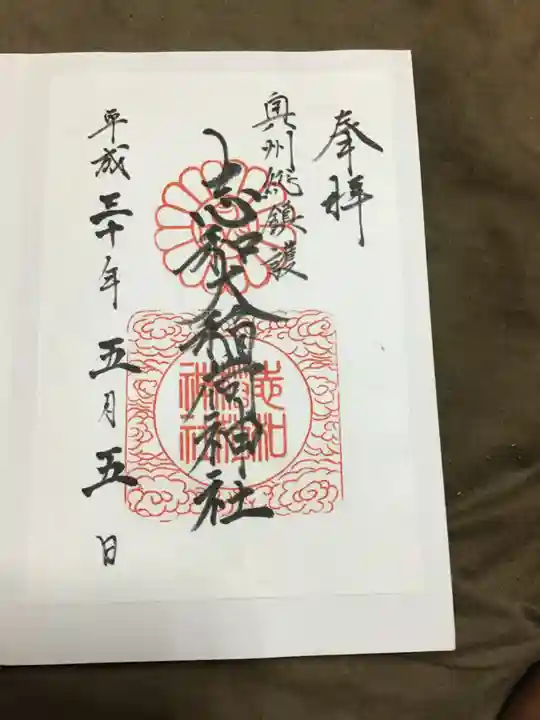 奉拝
奥州総鎮護
志和大稲荷神社
平成三十年五月五日